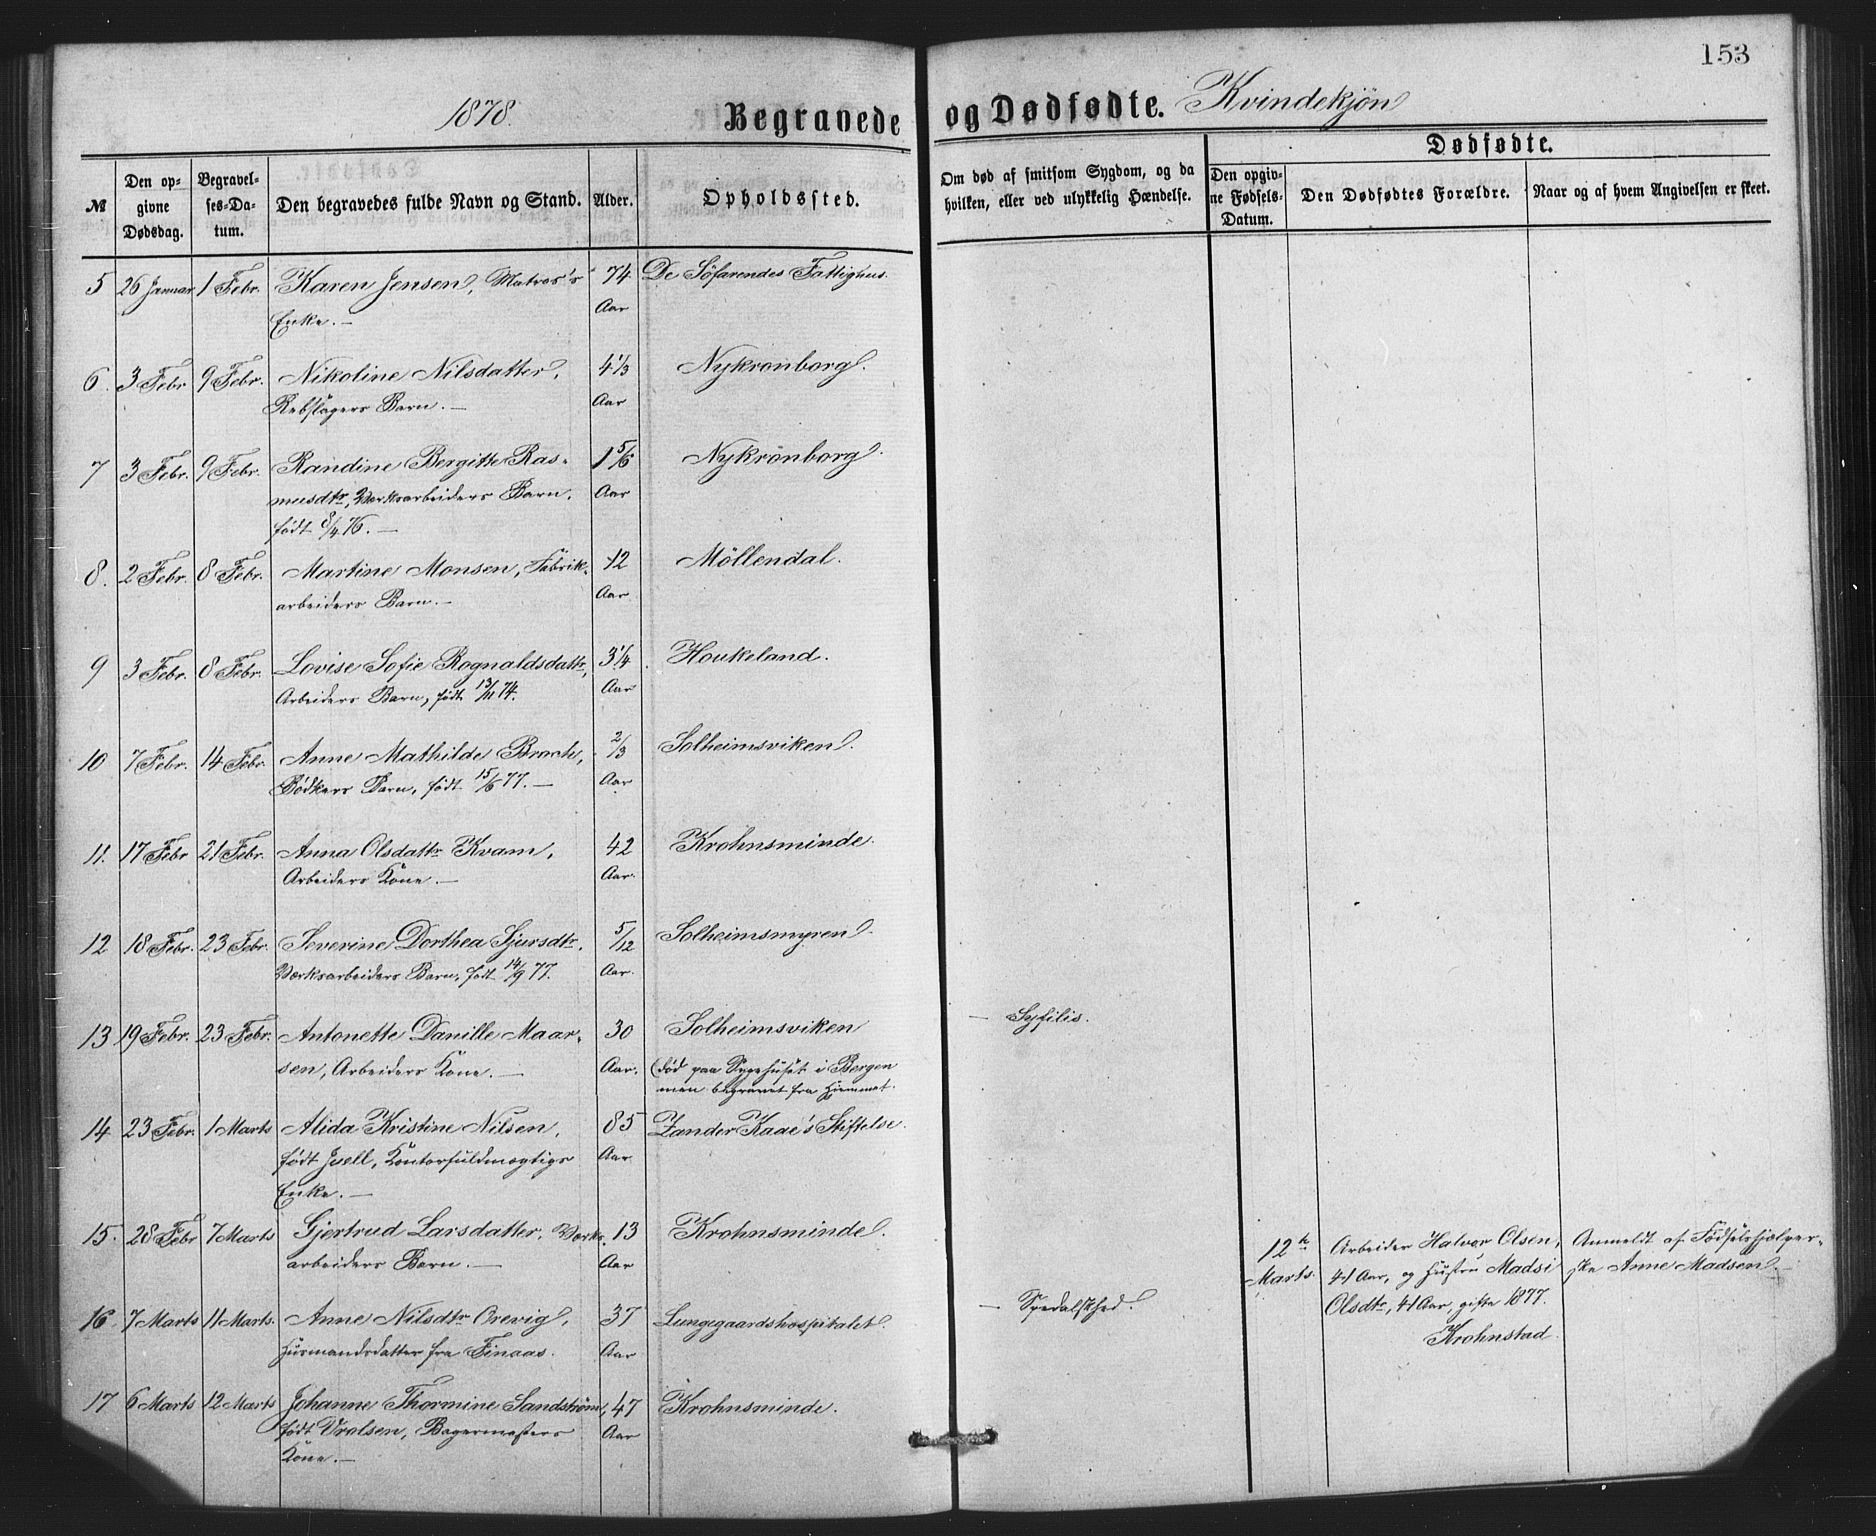 153
1878.
Begravede og Dødfødte. Kvindekjön
№
Den opgivne Dødsdag.
Begravelses-Datum.
Den begravedes fulde Navn og Stand.
Alder.
Opholdssted.
Om død af smitsom Sygdom, og da hvilken, eller ved ulykkelig Hændelse.
Dødfødte.
Den opgivne Fødsels-Datum.
Den Dødfødtes Forældre.
Naar og af hvem Angivelsen er skeet.
5 26 Januar 1 Febr. Karen Jensen, Matros's 74 De Söfarendes Fattighus.
Enke. — Aar
6. 3 Febr. 9 Febr. Nikoline Nilsdatter, 4 1/3 Nykronborg.
Rebslagers Barn. — Aar
7 3 Febr. 9 Febr. Randine Bergitte Ras- 1 5/6 Nykronborg.
musdtr, Værksarbeiders Barn, Aar
født 8/4 76. —
8. 2 Febr. 8 Febr. Martine Monsen, Fabrik- 12 Möllendal.
arbeiders Barn. — Aar
9 3 Febr. 8 Febr. Lovise Sofie Rognaldsdattr, 3 1/4 Houkeland.
Arbeiders Barn, født 13/11 74. Aar
10 7 Febr. 14 Febr. Anne Mathilde Broch, 2/3 Solheimsviken.
Bødkers Barn, født 15/6 77. — Aar
11. 17 Febr 21 Febr. Anna Olsdattr Kvam, 42 Krohnsminde.
Arbeiders Kone. — Aar.
12 18 Febr. 23 Febr. Severine Dorthea Sjursdtr, 5/12 Solheimsmyren.
Værksarbeiders Barn, født 14/9 77. Aar.
13 19 Febr. 23 Febr. Antonette Danille Maar- 30 Solheimsviken — Syfilis.
sen, Arbeiders Kone. — Aar. (død paa Sygehuset i Bergen
men begravet fra Hjemmet.
14 23 Febr. 1 Marts Alida Kristine Nilsen, 85 Zander Kaae's Stiftelse.
født Juell, Kontorfuldmægtigs Aar
Enke. —
15. 28 Febr 7 Marts Gjertrud Larsdatter, Værks- 13 Krohnsminde.
arbeiders Barn. — Aar
12te Marts.
Arbeider Halvor Olsen,
41 Aar, og Hustru Madsi
Olsdtr, 41 Aar, gifte 1877.
Krohnstad.
Anmeldt af Fødselshjælper-
ske Anne Madsen. —
16. 7 Marts 11 Marts. Anne Nilsdtr Orevig, 37 Lungegaardshospitalet. — Spedalskhed.
Husmandsdatter fra Finaas. Aar
17 6 Marts 12 Marts Johanne Thormine Sandström, 47 Krohnsminde.
født Vralsen, Bagermesters Aar
Kone. —